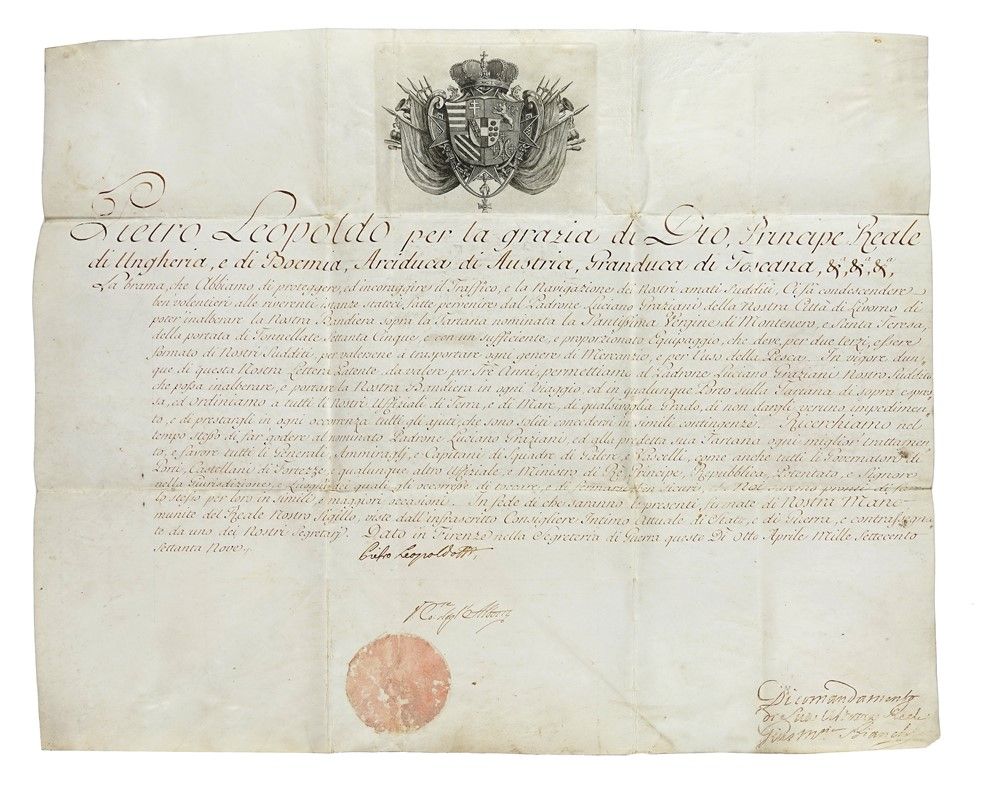 Pietro Leopoldo per la grazia di Dio, Principe Reale
di Ungheria, e di Boemia, Arciduca di Austria, Granduca di Toscana, &c., &c., &c.,
La brama, che Abbiamo di proteggere, ed incoraggire il Traffico, e la Navigazione de' Nostri amati Sudditi, Ci fà condescendere
ben volentieri alle riverenti istanze stateci fatte pervenire dal Padrone Luciano Graziani della Nostra Città di Livorno di
poter inalberare la Nostra Bandiera sopra la Tartana nominata la Santissima Vergine di Montenero, e Santa Teresa,
della portata di Tonnellate settanta Cinque, e con un sufficiente, e proporzionato Equipaggio, che deve, per due terzi, essere
formato di Nostri Sudditi, per valersene a trasportare ogni genere di Mercanzie, e per l'uso della Pesca. In vigore dun-
que di questa Nostra Lettera Patente, da valere per Tre Anni, permettiamo al Padrone Luciano Graziani Nostro Suddito,
che possa inalberare, e portare la Nostra Bandiera in ogni Viaggio, ed in qualunque Porto sulla Tartana di sopra espres-
sa, ed ordiniamo a tutti li Nostri Uffiziali di Terra, e di Mare, di qualsivoglia Grado, di non dargli veruno impedimen-
to, e di prestargli in ogni occorrenza tutti gli ajuti, che sono soliti concedersi in simili contingenze. Ricerchiamo nel
tempo stesso di far godere al nominato Padrone Luciano Graziani, ed alla predetta sua Tartana ogni miglior trattamen-
to, e favore tutti li Generali, Ammiragli, e Capitani di Squadre di Galere, e Vascelli, come anche tutti li Governatori di
Porti, Castellani di Fortezze, e qualunque altro Uffiziale, e Ministro di Re, Principe, Repubblica, Potentato, e Signore
nella Giurisdizione, e Luoghi de' quali gli occorresse di toccare, e di fermarsi
lo stesso per loro in simili, e maggiori occasioni. In fede di che saranno le presenti, firmate di Nostra Mano
munite del Reale Nostro Sigillo, viste dall'infrascritto Consigliere Intimo Attuale di Stato, e di Guerra, e contrassigna-
te da uno dei Nostri Segretarj. Dato in Firenze nella Segreteria di Guerra questo Dì Otto Aprile Mille Settecento
Settanta Nove
Pietro Leopoldo
Di comandamento
di Sua
Bianchi